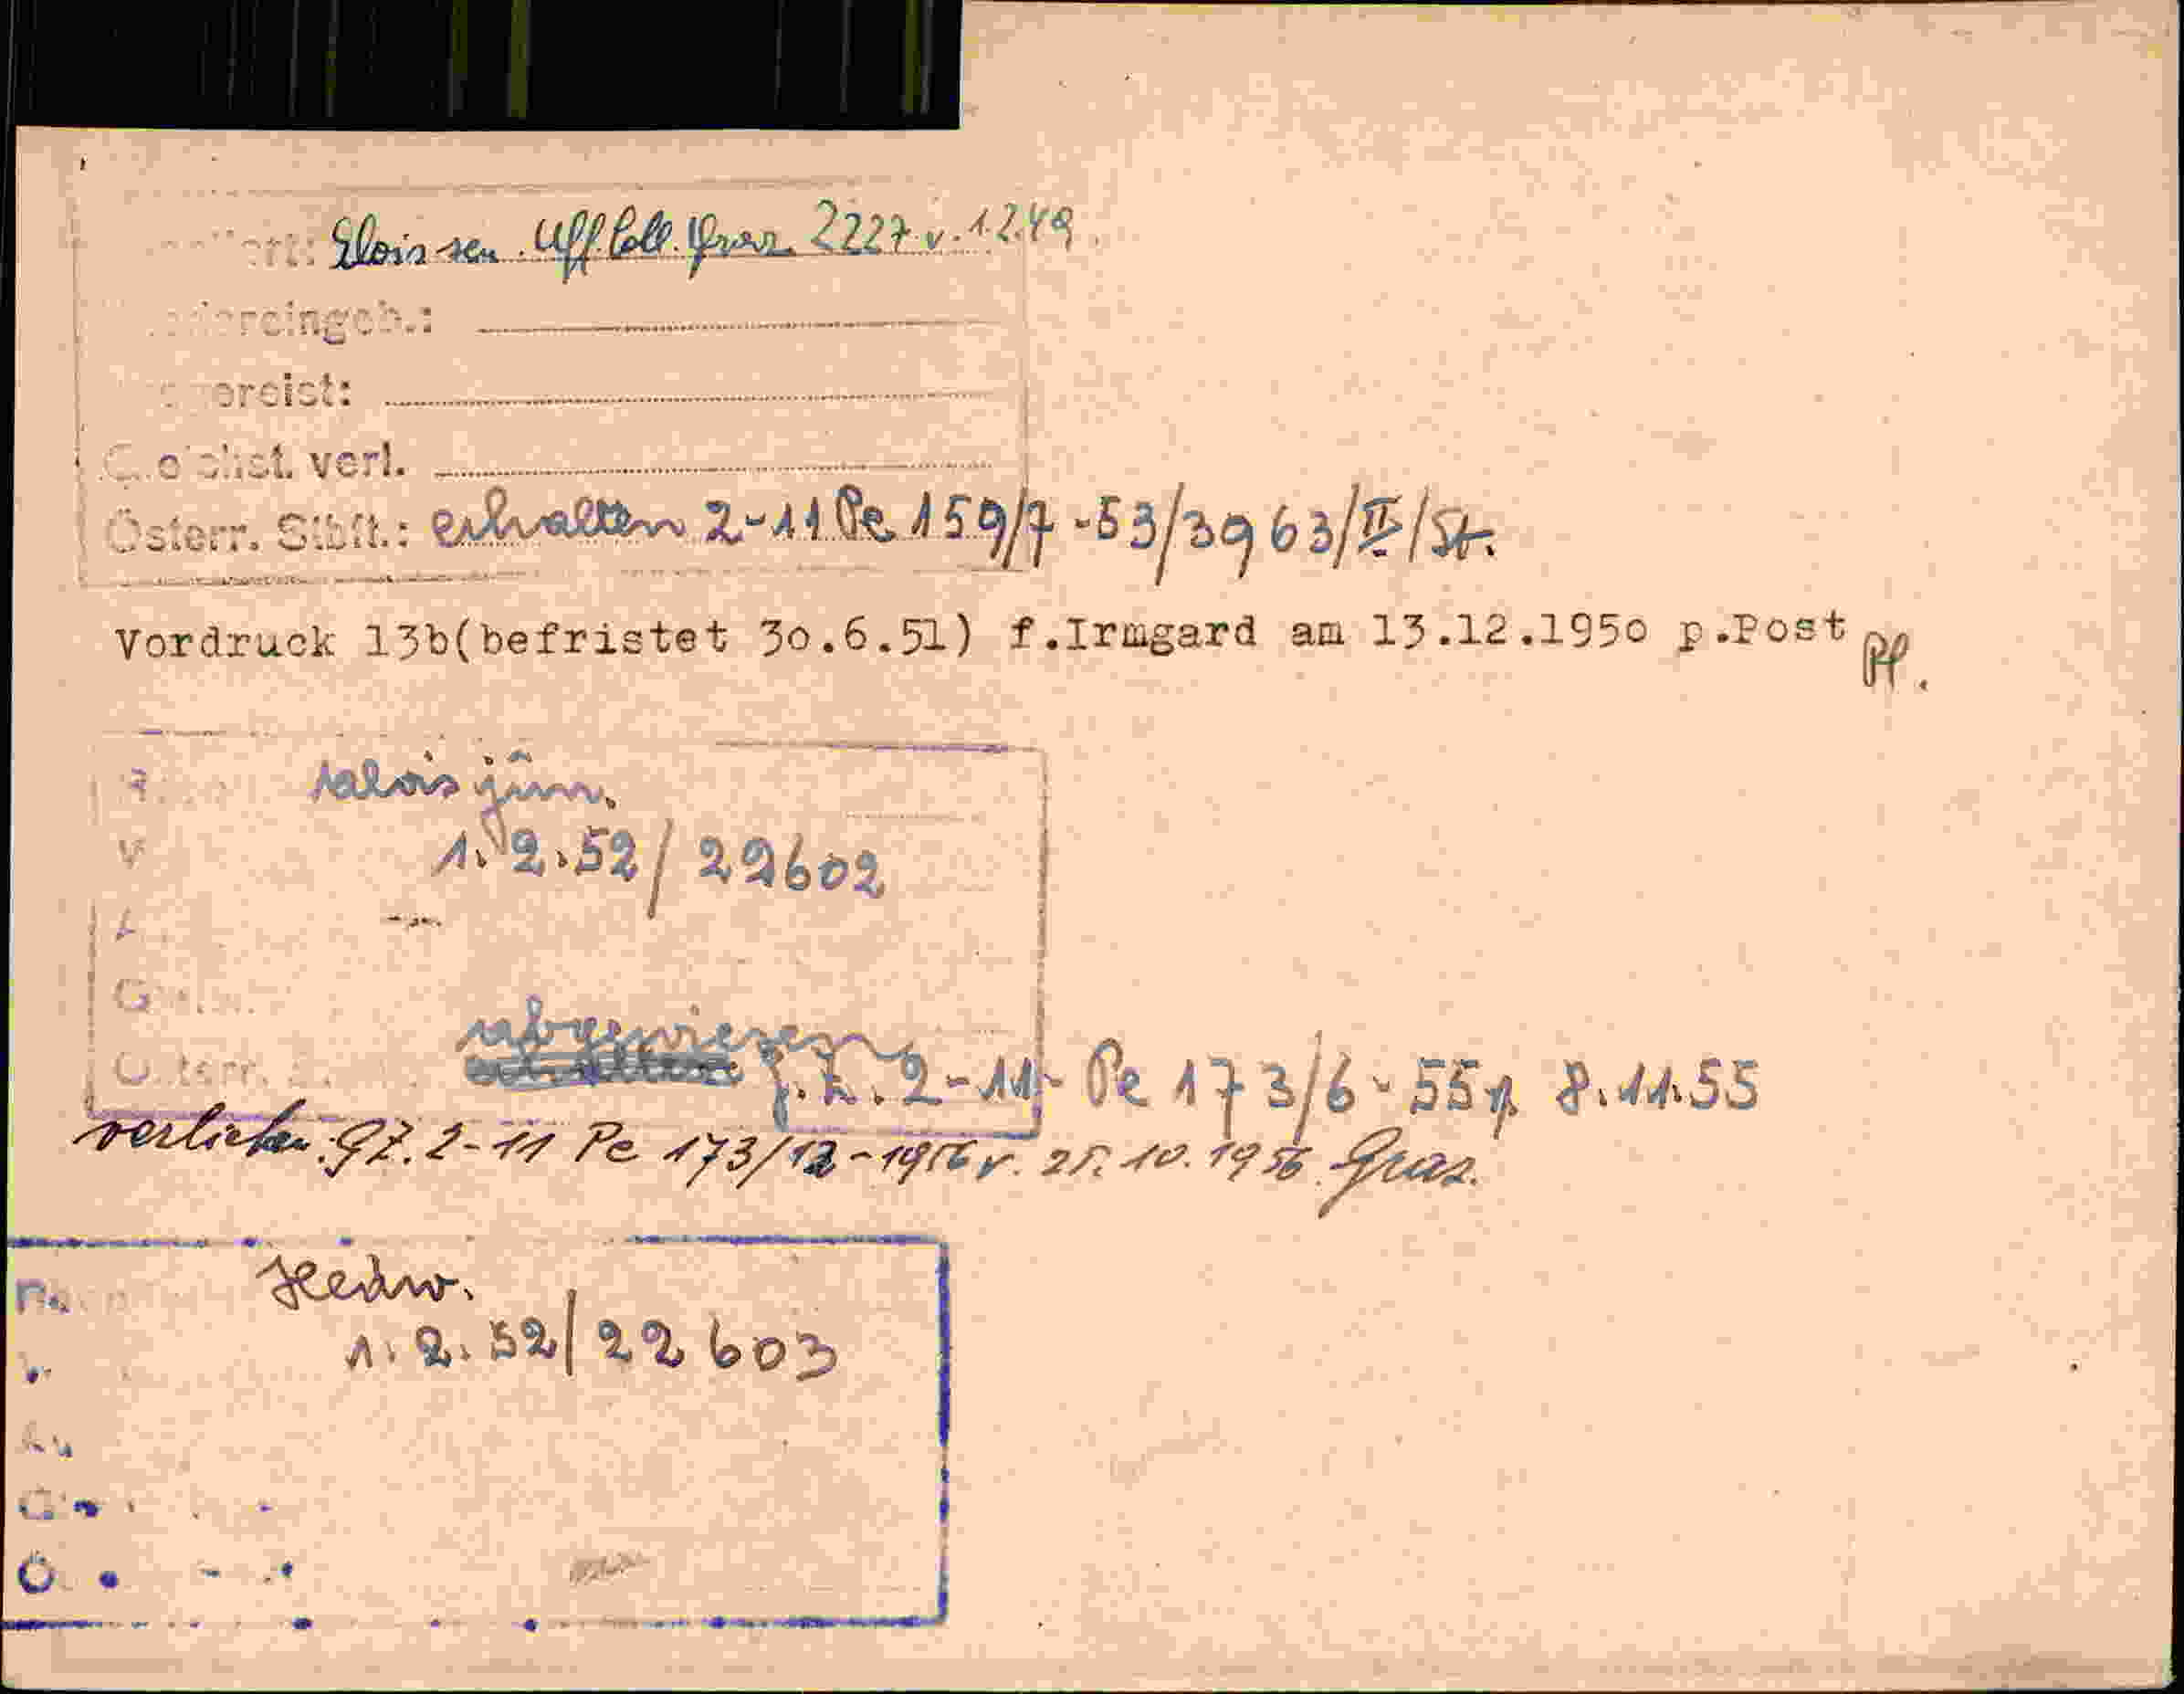 Alois sen. Uff. Coll. Graz 2227 v. 1.2.49
ereingeb.:
ereist:
verl.
Österr. Stbft.: erhalten 2-11 Pe 159/7-53/3963/II/St.
Vordruck 13b(befristet 30.6.51) f.Irmgard am 13.12.1950 p.Post
Alois jun.
1.2.52/22602
abgewiesen
g.Z. 2-11- Pe 173/6-55 v. 8.11.55
verliehen: GZ. 2-11 Pe 173/12-1956 v. 25.10.1956 Graz.
Hedw.
1.2.52/22603